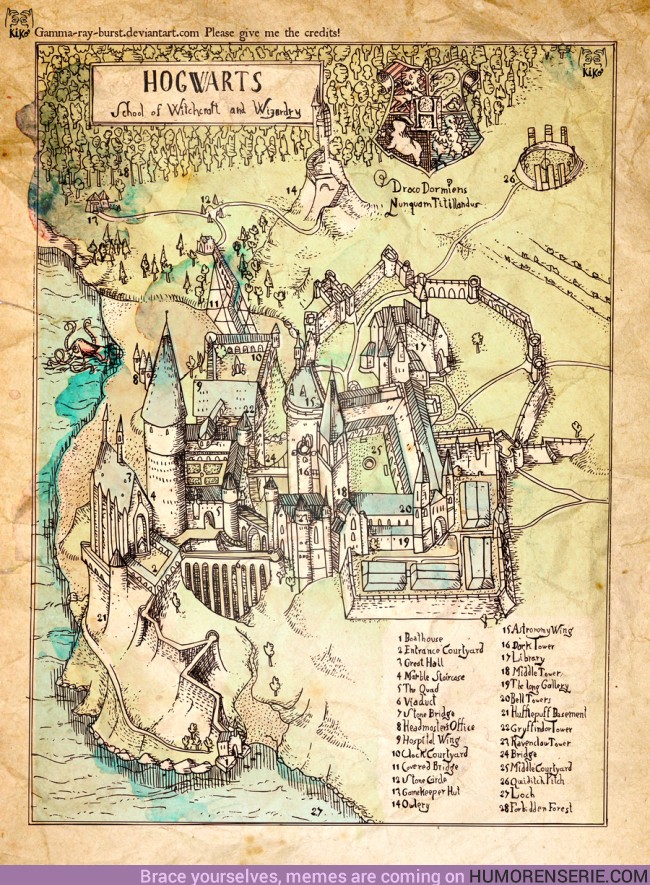 KiKo Gamma-ray-burst.deviantart.com Please give me the credits!
KiKo
HOGWARTS
School of Witchcraft and Wizardry
Draco Dormiens
Nunquam Titillandus
28
14
26
12
13
11
10
17
8
9
22
15
7
24
25
16
4
18
20
5
27
19
2
6
21
1
1 Boathouse
2 Entrance Courtyard
3 Great Hall
4 Marble Staircase
5 The Quad
6 Viaduct
7 Stone Bridge
8 Headmasters Office
9 Hospital Wing
10 Clock Courtyard
11 Covered Bridge
12 Stone Circle
13 Gamekeeper Hut
14 Owlery
15 Astronomy Wing
16 Dark Tower
17 Library
18 Middle Tower
19 The long Gallery
20 Bell Towers
21 Hufflepuff Basement
22 Gryffindor Tower
23 Ravenclaw Tower
24 Bridge
25 Middle Courtyard
26 Quidditch Pitch
27 Loch
28 Forbidden Forest
27
Brace yourselves, memes are coming on HUMORENSERIE.COM